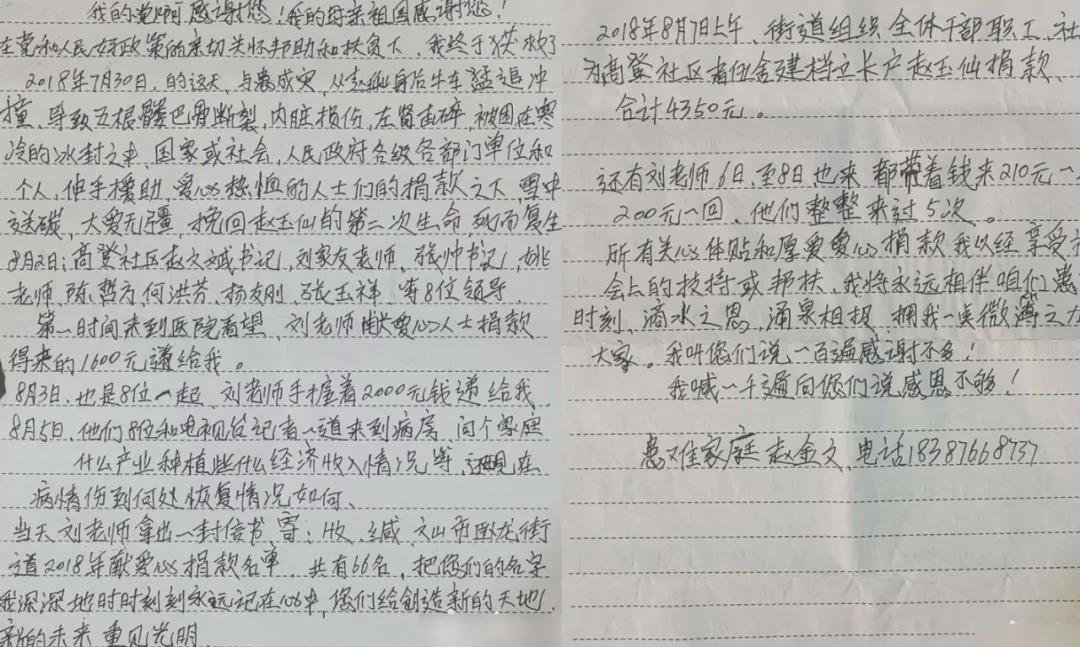 我的党啊感谢您！我的母亲祖国感谢您！
在党和人民好政策的亲切关怀帮助和扶贫下，我终于获救了
2018年7月30日，的这天，与患成灾，从赵仙身后牛车猛追冲
撞、导致五根髅巴骨断裂，内脏损伤，左肾击碎，被困在寒
冷的冰封之中，国家或社会，人民政府各级各部门单位和
个人，伸手援助，爱心热恤的人士们的捐款之下，雪中
送碳，大爱无疆，挽回赵玉仙的第二次生命死而复生
8月2日；高登社区赵文斌书记，刘家友老师、张帅书记，姚
老师，陈哲方何洪芳、杨友刚，张玉祥，等8位领导，
第一时间来到医院看望，刘老师献爱心人士捐款
得来的1600元递给我。
8月3日，也是8位一起，刘老师手握着2000元钱递给我
8月5日，他们8位和电视台记者一道来到病房，问个家庭
什么产业种植些什么经济收入情况等，还现在
病情伤到何处恢复情况如何、
当天刘老师拿出一封信书，写：收，缄，文山市卧龙街
道2018年献爱心捐款名单，共有66名，把您们的名字
我深深地时时刻刻永远记在心中，您们给创造新的天地，
新的未来，重见光明
2018年8月7日上午，街道组织全体干部职工，社
为高登社区 建档立卡户赵玉仙捐款、
合计4350元。
还有刘老师6日，至8日也来都带着钱来210元一
200元一回，他们整整来过5次。
所有关心体贴和厚爱爱心捐款我以经享受
会上的扶持或帮扶，我将永远相伴咱们患
时刻，滴水之恩，涌泉相报，拥我一点微薄之力
大家。我叫您们说一百遍感谢不多！
我喊一千遍向您们说感恩不够！
患难家庭赵金文，电话18387668737